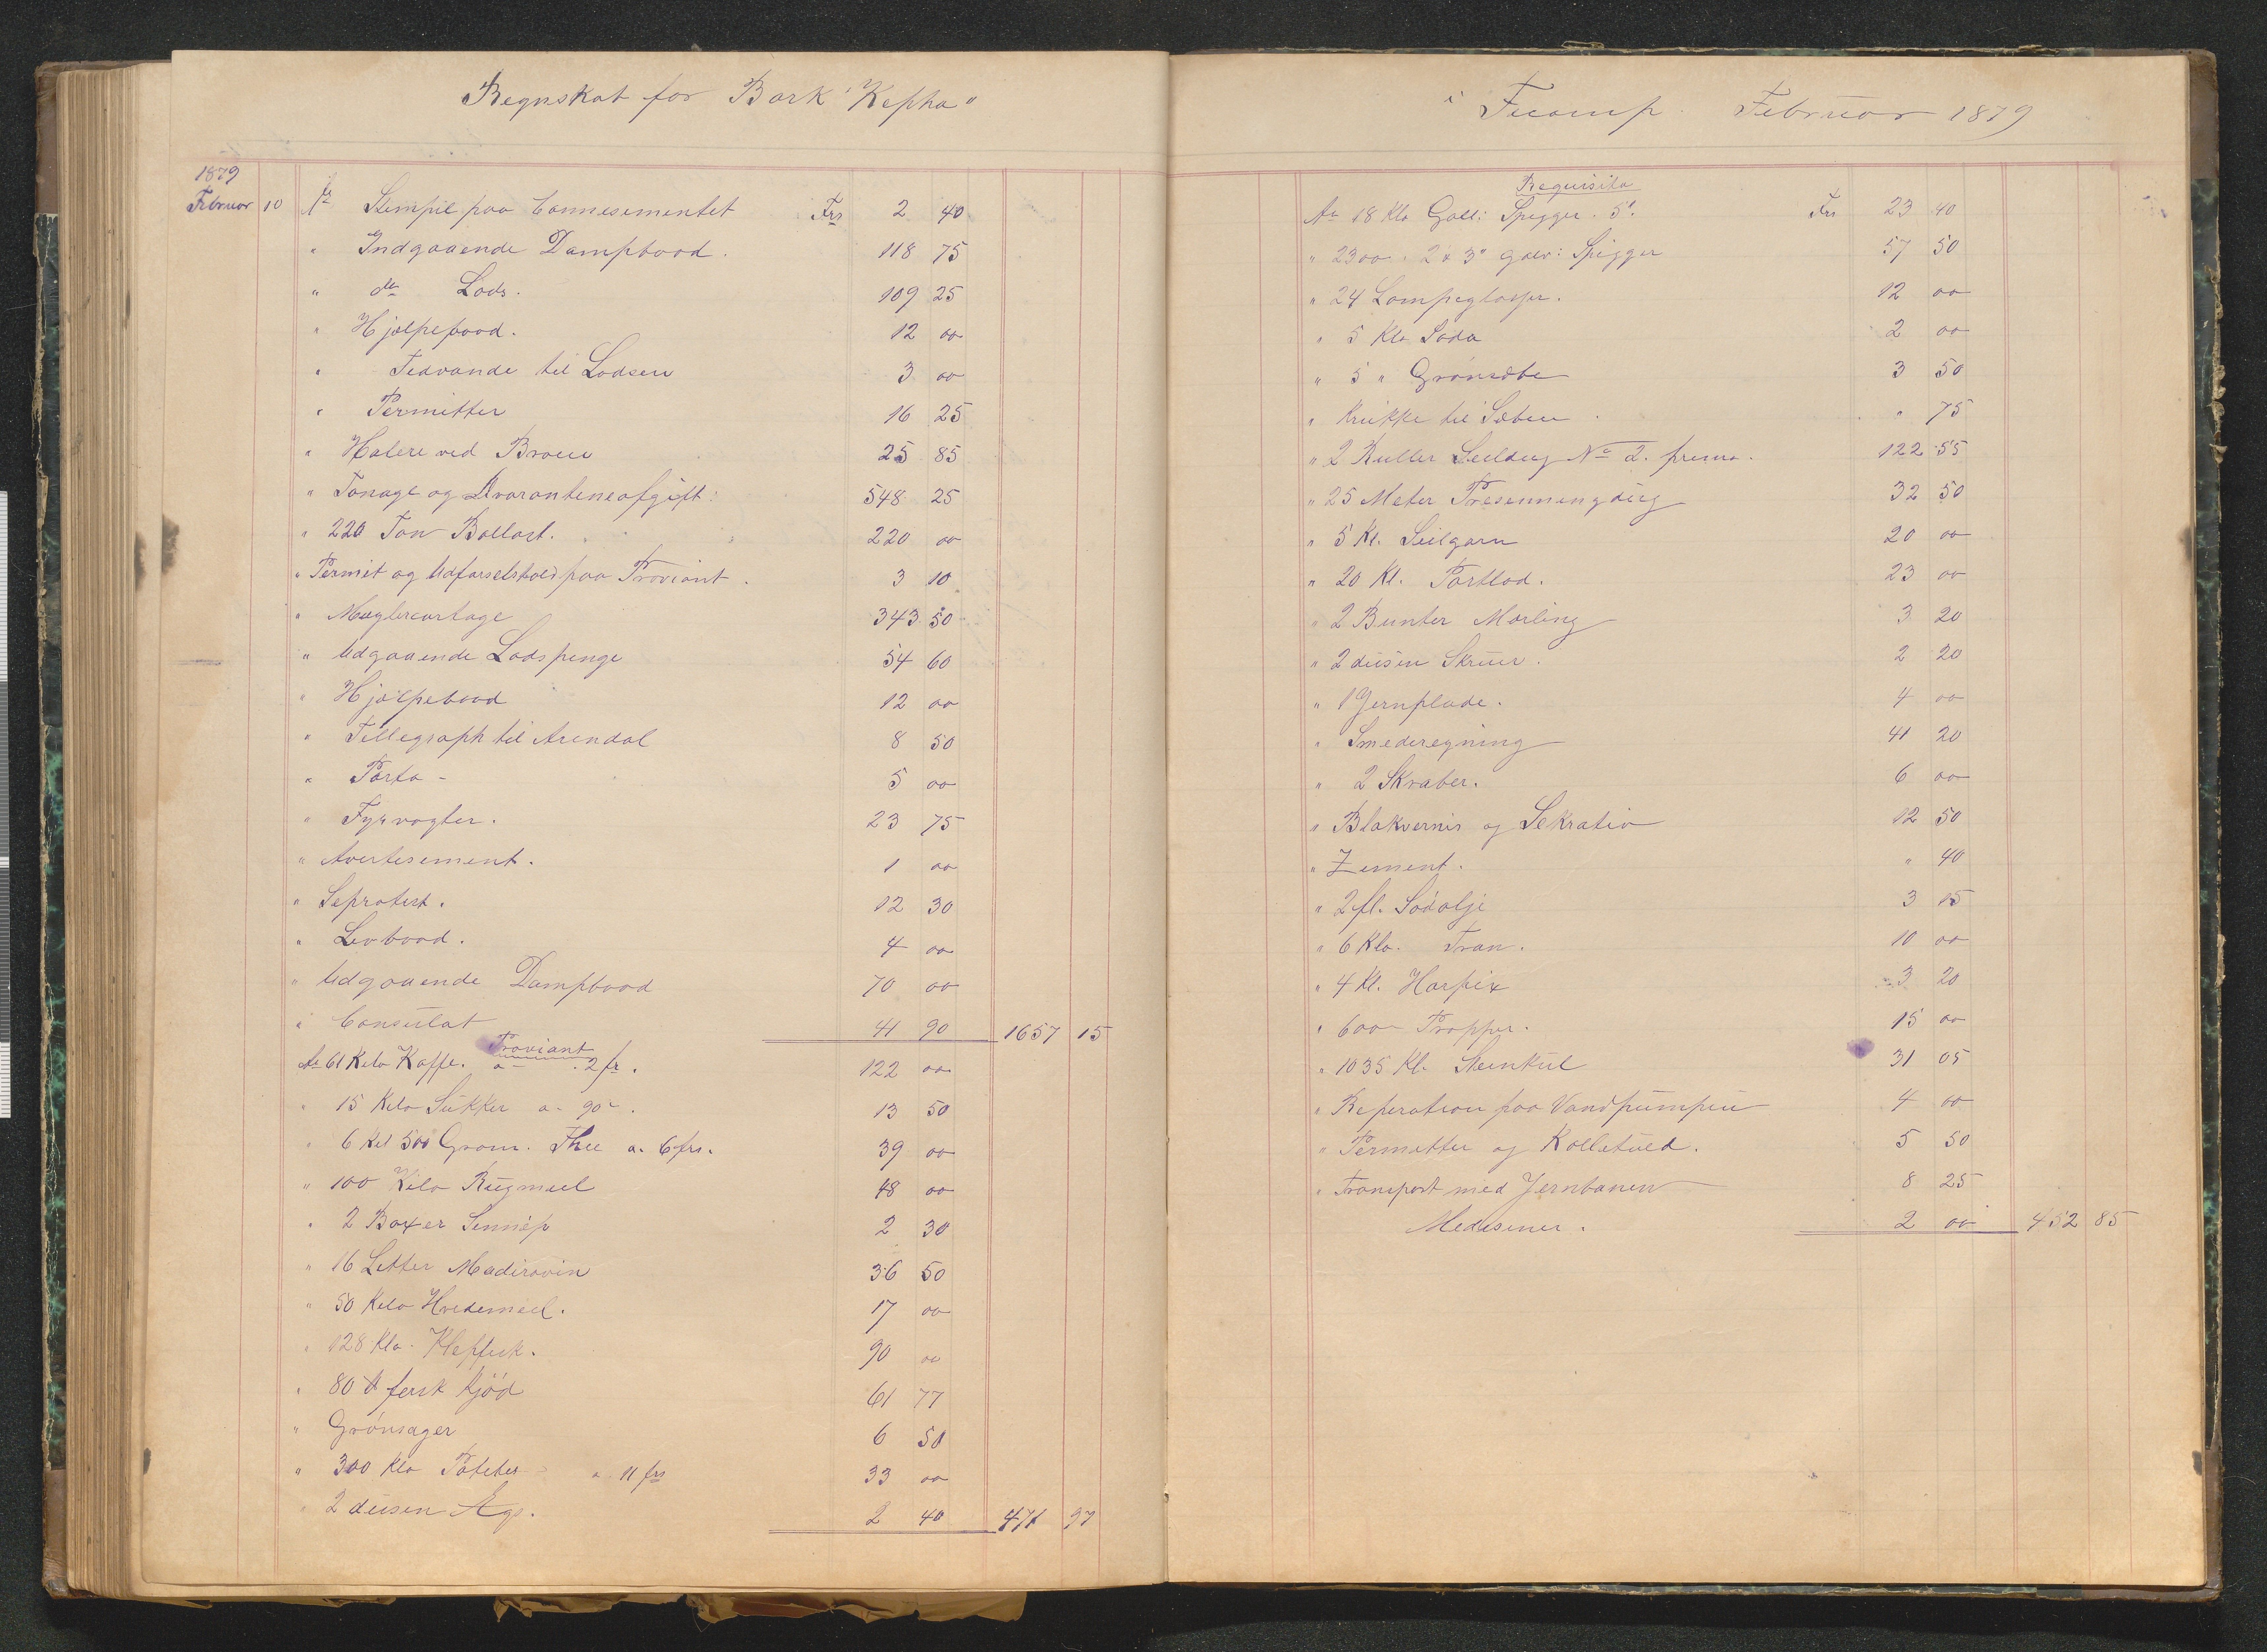 Regnskab for Bark "Kepha"
1879
Februar 10 Pr Stempel paa Connesementet Frs 2 40
" Indgaaende Dampbaad. 118 75
" do Lods. 109 25
" Hjælpebaad. 12 00
" Tedvande til Lodsen 3 00
" Permitter 16 25
" Halere ved Broen 25 85
" Tonage og Kvaranteneafgift: 548 25
" 220 Ton Ballast. 220 00
" Permit og Udførselstold paa Proviant. 3 10
" Mæglercortage 343 50
" Udgaaende Lodspenge 54 60
" Hjælpebaad 12 00
" Tellegraph til Arendal 8 50
" Porto - 5 00
" Fyrvogter. 23 75
" Avertisement. 1 00
" Seprotest. 12 30
" Levbaad. 4 00
" Udgaaende Dampbaad 70 00
" Consulat 41 90 1657 15
Proviant
Pr 61 Kilo Kaffe. a - 2 fr. 122 00
" 15 Kilo Sukker a - 90 c. 13 50
" 6 Kil 500 Gram. Thee a. 6 frs. 39 00
" 100 Kilo Rugmeel 48 00
" 2 Boxer Sennep 2 30
" 16 Letter Madiravin 36 50
" 50 Kilo Hvedemeel. 17 00
" 128 Klo. Klepfisk. 90 00
" 80 ℔ fersk Kjød 61 77
" Grønsager 6 50
" 300 Klo Poteter a 11 frs 33 00
" 2 dusen Æg. 2 40 471 97
i Fecamp Februar 1879
Requisita
Pr 18 Klo Gall: Spigger. 5". Frs 23 40
" 2300 " 2 & 3" galv: Spigger 57 50
" 24 Lampeglasser. 12 00
" 5 Klo Soda 2 00
" 5 " Grønsæbe 3 50
" Krukke til Sæben " 75
" 2 Ruller Seildug No 2. prima. 122 55
" 25 Meter Presenningdug 32 50
" 5 Kl. Seilgarn 20 00
" 20 Kl. Portlod. 23 00
" 2 Bunter Marling 3 20
" 2 dusen Skruer. 2 20
" 1 Jernplade. 4 00
" Smederegning 41 20
" 2 Skraber. 6 00
" Blakvernis og Sekrativ 12 50
" Zement. " 40
" 2 fl. Sodolje 3 15
" 6 Klo. Tran. 10 00
" 4 Kl. Harpix 3 20
" 600 - Propper. 15 00
" 1035 Kl. Steenkul 31 05
" Reperation paa Vandpumpen 4 00
" Permitter og Kolletold. 5 50
" Transport med Jernbanen 8 25
Medesiner. 2 00 452 85